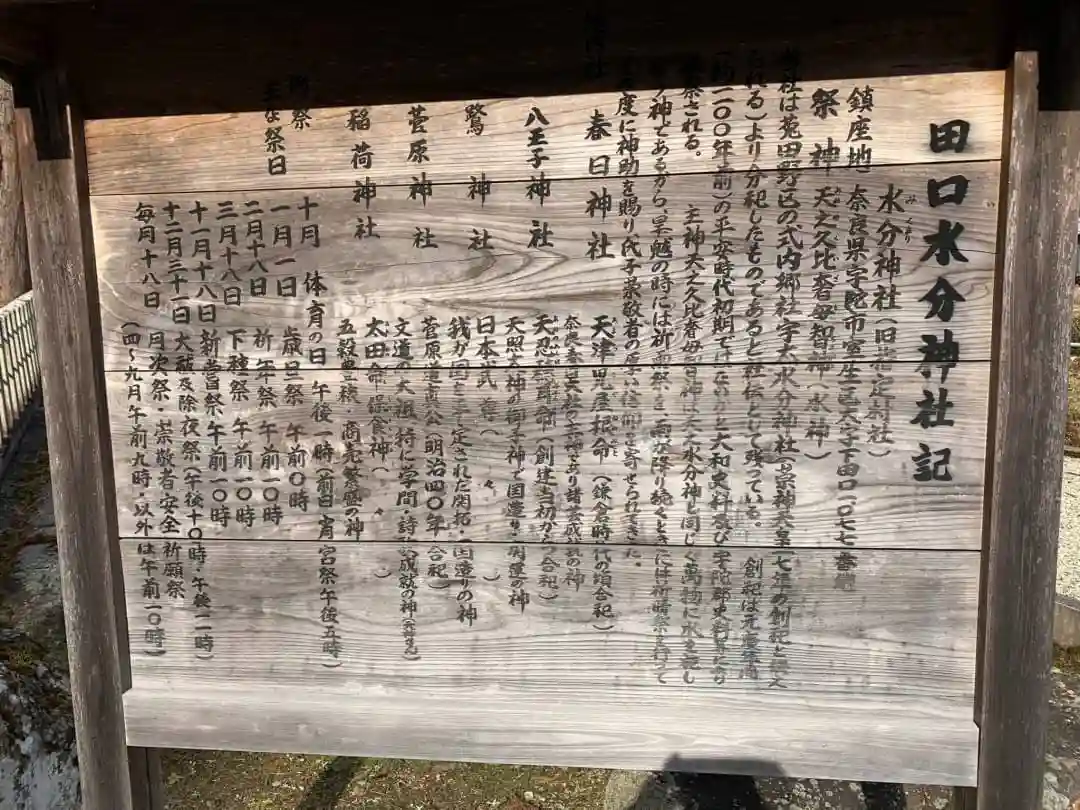 田口水分神社記
水分神社(旧指定村社)
みくまり
鎮座地 奈良県宇陀市室生区大字下田口一〇七七番地
祭神 天之久比奢母智神(水神)
社は菟田野区の式内郷社宇太水分神社(崇神天皇七年の創祀と伝え
られる)より分祀したものであると社伝として残っている。 創祀は元慶年間
一〇〇年前)の平安時代初期ではないかと大和史料及び宇陀郡史料等により
察される。 主神天之久比奢母智神は天之水分神と同じく萬物に水を配し
神であるから旱魃の時には祈雨祭を、雨が降り続くときには祈晴祭を行って
度に神助を賜り氏子崇敬者の厚い信仰を寄せられてきた。
春日神社 天津児屋根命(鎌倉時代の頃合祀)
奈良春日大社の主神であり諸業成就の神
八王子神社 天忍穂耳命(創建当初から合祀)
天照大神の御子神で国造り・開運の神
鷺神社 日本武尊( 〃 )
我が国を平定された開拓・国造りの神
菅原神社 菅原道真公(明治四〇年合祀)
文道の大祖、特に学問・詩歌成就の神(天神さん)
稲荷神社 太田命・保食神( 〃 )
五穀豊穣・商売繁盛の神
例祭 十月 体育の日 午後一時(前日宵宮祭午後五時)
主な祭日 一月一日 歳旦祭 午前〇時
二月十八日 祈年祭 午前一〇時
三月十八日 下種祭 午前一〇時
十一月十八日 新嘗祭 午前一〇時
十二月三十一日 大祓及除夜祭(午後十〇時・午後一一時)
毎月十八日 月次祭・崇敬者安全祈願祭
(四〜九月午前九時・以外は午前一〇時)